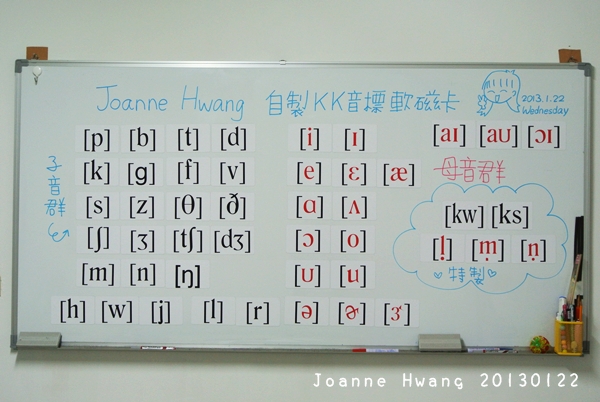 Joanne Hwang 自製KK音標軟磁卡
2013.1.22
Wednesday
子音群
[p] [b] [t] [d]
[k] [g] [f] [v]
[s] [z] [θ] [ð]
[ʃ] [ʒ] [tʃ] [dʒ]
[m] [n] [ŋ]
[h] [w] [j] [l] [r]
[i] [ɪ]
[e] [ɛ] [æ]
[ɑ] [ʌ]
[ɔ] [o]
[ʊ] [u]
[ə] [ɚ] [ɝ]
[aɪ] [aʊ] [ɔɪ]
母音群
[kw] [ks]
[l̩] [m̩] [n̩]
♡特製♡
Joanne Hwang 20130122